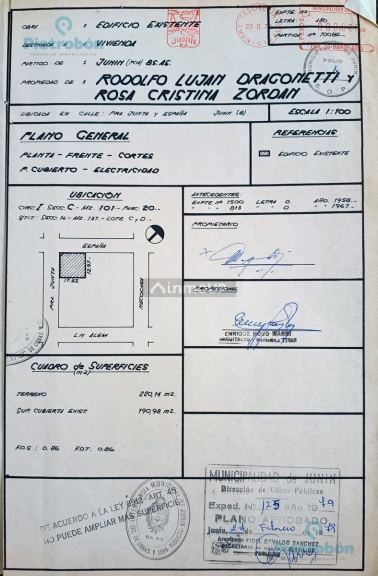 OBRA: EDIFICIO EXISTENTE
DESTINADA A: VIVIENDA
PARTIDO DE: JUNIN (PCIA) BS.AS.
PROPIEDAD DE: RODOLFO LUJAN DRAGONETTI Y
ROSA CRISTINA ZORDAN
UBICADA EN CALLE: PRA JUNTA Y ESPAÑA JUNIN (B) ESCALA 1:100
EXPTE. Nº
LETRA:
PARTIDA Nº
FOLIO
S.O.P.
Pietrobón
SERVICIOS INMOBILIARIOS
PLANO GENERAL
PLANTA - FRENTE - CORTES
P. CUBIERTO - ELECTRICIDAD
REFERENCIAS
EDIFICIO EXISTENTE
UBICACION
CIRC: I SECC: C - MZ. 101 - PARC: 20
QTIT: SECC: 14 - MZ. 137 - LOTE C y D
ESPAÑA
PRA. JUNTA
NECOCHEA
L.N. ALEM
17.62
12.97
ANTECEDENTES:
EXPTE Nº 1500 LETRA O AÑO. 1958
" " 813 " O. " 1967
PROPIETARIO
PROFESIONAL
ENRIQUE HUGO
ARQUITECTO MATRICULA
CUADRO de SUPERFICIES
(m2)
TERRENO 220,14 m2.
SUP. CUBIERTA EXIST. 190,98 m2.
F.O.S: 0.86 F.O.T. 0.86
DE ACUERDO A LA LEY 8912 ART 45
NO PUEDE AMPLIAR MAS SUPERFICIE
MUNICIPALIDAD de JUNIN
Dirección de Obras Públicas
Exped. Nº 125 Año 1979
PLANO APROBADO
Junín, Febrero 79
Arquitecto FIDEL OSVALDO SANCHEZ
Pietrobón